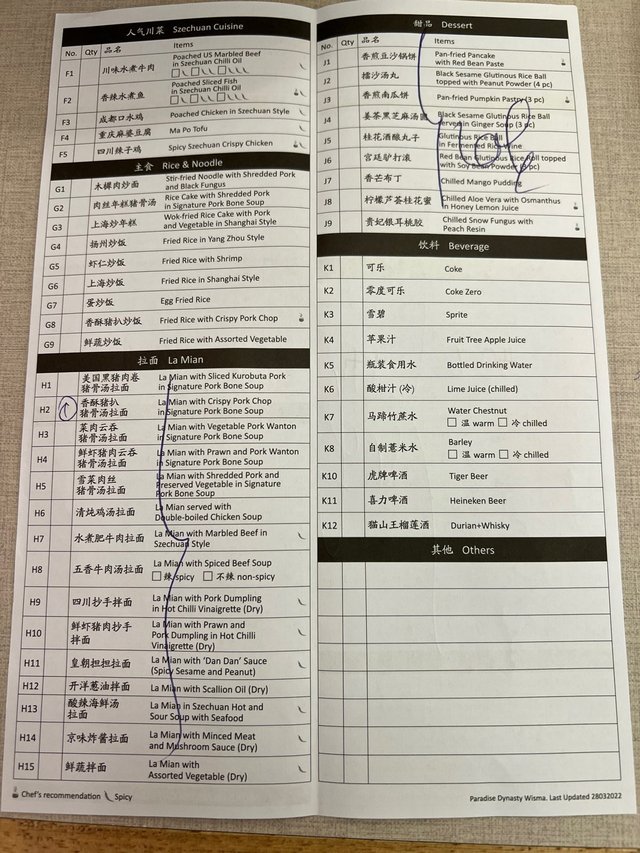 人气川菜 Szechuan Cuisine
No. Qty 品名 Items
F1 川味水煮牛肉 Poached US Marbled Beef
in Szechuan Chilli Oil
F2 香辣水煮鱼 Poached Sliced Fish
in Szechuan Chilli Oil
F3 成都口水鸡 Poached Chicken in Szechuan Style
F4 重庆麻婆豆腐 Ma Po Tofu
F5 四川辣子鸡 Spicy Szechuan Crispy Chicken
主食 Rice & Noodle
G1 木樨肉炒面 Stir-fried Noodle with Shredded Pork
and Black Fungus
G2 肉丝年糕猪骨汤 Rice Cake with Shredded Pork
in Signature Pork Bone Soup
G3 上海炒年糕 Wok-fried Rice Cake with Pork
and Vegetable in Shanghai Style
G4 扬州炒饭 Fried Rice in Yang Zhou Style
G5 虾仁炒饭 Fried Rice with Shrimp
G6 上海炒饭 Fried Rice in Shanghai Style
G7 蛋炒饭 Egg Fried Rice
G8 香酥猪扒炒饭 Fried Rice with Crispy Pork Chop
G9 鲜蔬炒饭 Fried Rice with Assorted Vegetable
拉面 La Mian
H1 美国黑猪肉卷
猪骨汤拉面 La Mian with Sliced Kurobuta Pork
in Signature Pork Bone Soup
H2 香酥猪扒
猪骨汤拉面 La Mian with Crispy Pork Chop
in Signature Pork Bone Soup
H3 菜肉云吞
猪骨汤拉面 La Mian with Vegetable Pork Wanton
in Signature Pork Bone Soup
H4 鲜虾猪肉云吞
猪骨汤拉面 La Mian with Prawn and Pork Wanton
in Signature Pork Bone Soup
H5 雪菜肉丝
猪骨汤拉面 La Mian with Shredded Pork and
Preserved Vegetable in Signature
Pork Bone Soup
H6 清炖鸡汤拉面 La Mian served with
Double-boiled Chicken Soup
H7 水煮肥牛肉拉面 La Mian with Marbled Beef in
Szechuan Style
H8 五香牛肉汤拉面 La Mian with Spiced Beef Soup
辣 spicy 不辣 non-spicy
H9 四川抄手拌面 La Mian with Pork Dumpling
in Hot Chilli Vinaigrette (Dry)
H10 鲜虾猪肉抄手
拌面 La Mian with Prawn and
Pork Dumpling in Hot Chilli
Vinaigrette (Dry)
H11 皇朝担担拉面 La Mian with ‘Dan Dan’ Sauce
(Spicy Sesame and Peanut)
H12 开洋葱油拌面 La Mian with Scallion Oil (Dry)
H13 酸辣海鲜汤
拉面 La Mian in Szechuan Hot and
Sour Soup with Seafood
H14 京味炸酱拉面 La Mian with Minced Meat
and Mushroom Sauce (Dry)
H15 鲜蔬拌面 La Mian with
Assorted Vegetable (Dry)
Chef's recommendation Spicy
甜品 Dessert
No. Qty 品名 Items
J1 香煎豆沙锅饼 Pan-fried Pancake
with Red Bean Paste
J2 擂沙汤丸 Black Sesame Glutinous Rice Ball
topped with Peanut Powder (4 pc)
J3 香煎南瓜饼 Pan-fried Pumpkin Pastry (3 pc)
J4 姜茶黑芝麻汤圆 Black Sesame Glutinous Rice Ball
served in Ginger Soup (3 pc)
J5 桂花酒酿丸子 Glutinous Rice Ball
in Fermented Rice Wine
J6 宫廷驴打滚 Red Bean Glutinous Rice Roll topped
with Soy Bean Powder (4 pc)
J7 香芒布丁 Chilled Mango Pudding
J8 柠檬芦荟桂花蜜 Chilled Aloe Vera with Osmanthus
in Honey Lemon Juice
J9 贵妃银耳桃胶 Chilled Snow Fungus with
Peach Resin
饮料 Beverage
K1 可乐 Coke
K2 零度可乐 Coke Zero
K3 雪碧 Sprite
K4 苹果汁 Fruit Tree Apple Juice
K5 瓶装食用水 Bottled Drinking Water
K6 酸柑汁 (冷) Lime Juice (chilled)
K7 马蹄竹蔗水 Water Chestnut
温 warm 冷 chilled
K8 自制薏米水 Barley
温 warm 冷 chilled
K10 虎牌啤酒 Tiger Beer
K11 喜力啤酒 Heineken Beer
K12 猫山王榴莲酒 Durian+Whisky
其他 Others
Paradise Dynasty Wisma. Last Updated 28032022